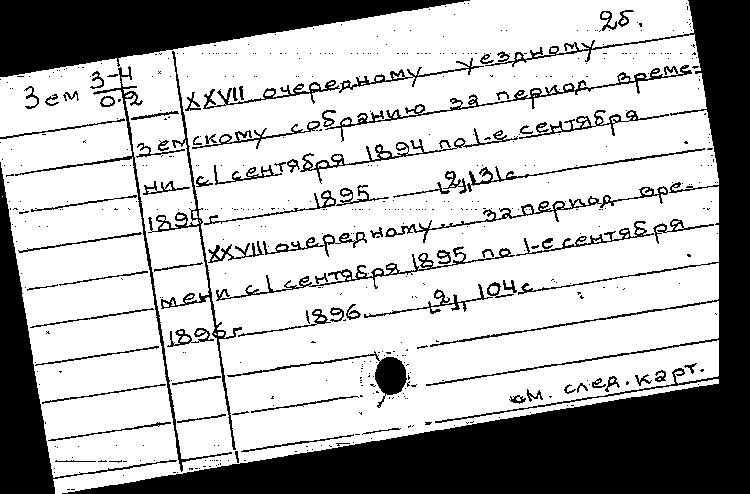 2б.
Зем 3-4
0-2
XXVII очередному уездному
земскому собранию за период време-
ни с 1 сентября 1894 по 1-е сентября
1895 г. 1895 [2], 131 с.
XXVIII очередному... за период вре-
мени с 1 сентября 1895 по 1-е сентября
1896 г. 1896. [2], 104 с
см. след. карт.